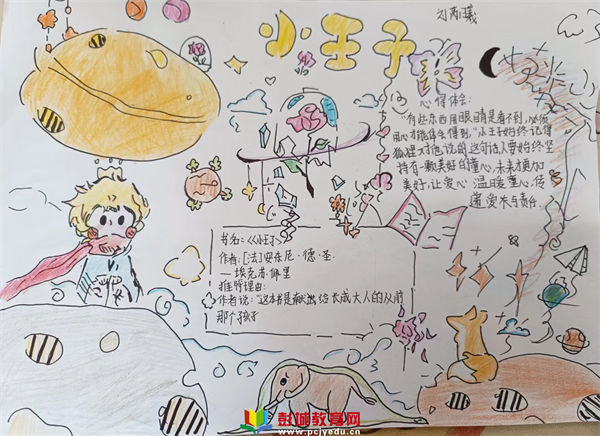 小王子
心得体会:
"有些东西用眼睛是看不到,必须
用心才能体会得到。"小王子始终记得
狐狸对他说的这句话人要始终坚
持有一颗美好的童心,未来更加
美好,让爱心温暖童心,传
递爱长与责任.
书名:《小王子》
作者:[法]安东尼·德·圣
—埃克苏佩里
推荐理由:
作者说:"这本书是献给长成大人的从前
那个孩子
彭城教育网
www.pcjyedu.cn